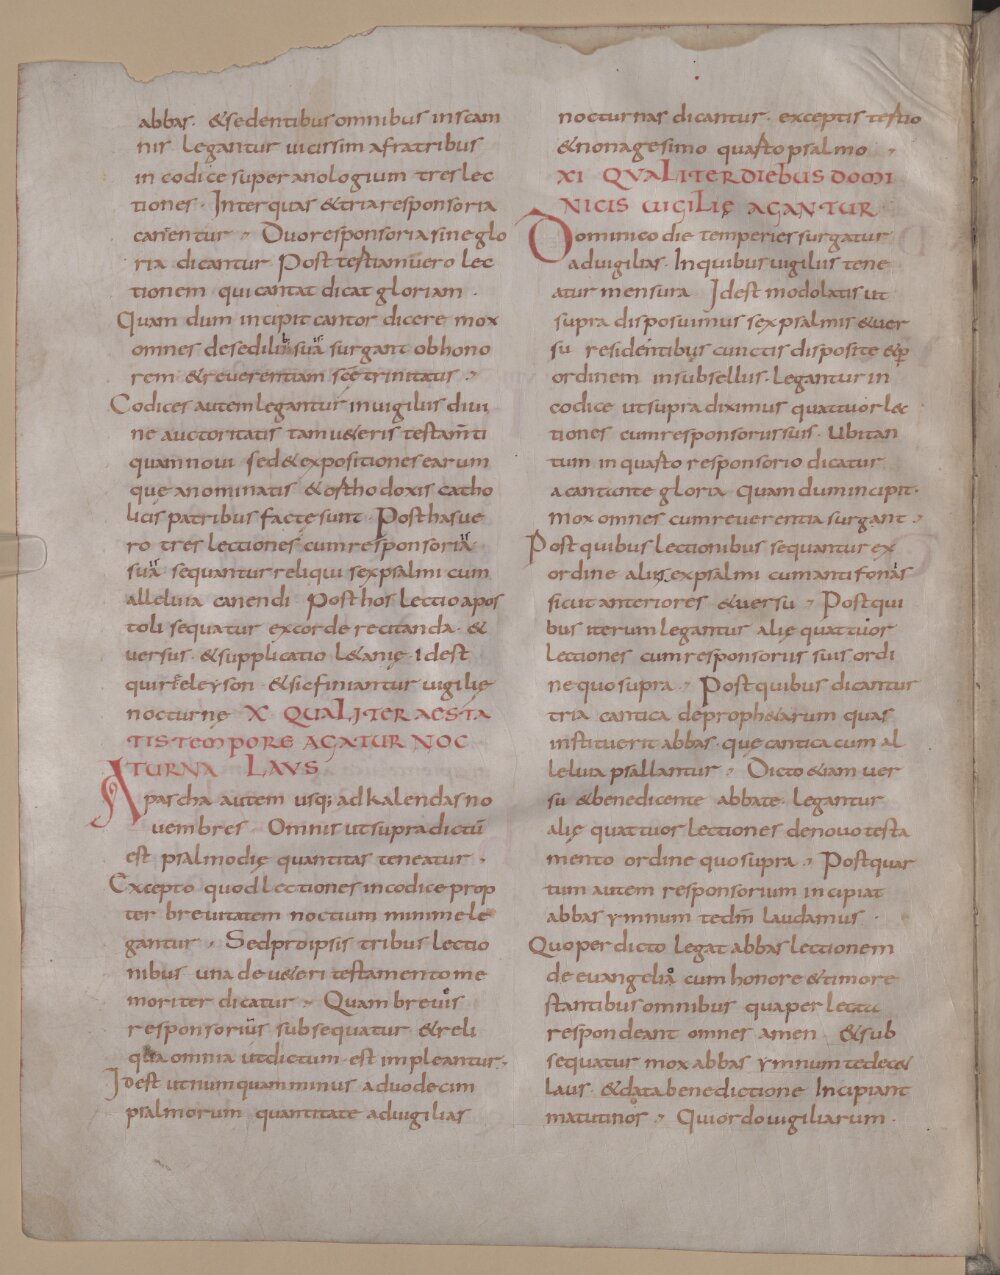 abbas· & sedentibus omnibus in scam
nis legantur uicissim a fratribus
in codice super anologium tres lec
tiones · Inter quas & tria responsoria
canentur · Duo responsoria sine glo
ria dicantur Post tertiam uero lec
tionem qui cantat dicat gloriam ·
Quam dum incipit cantor dicere mox
omnes de sedilib; suis surgant ob hono
rem & reuerentiam sc̄e trinitatis ·
Codices autem legantur in uigiliis diui
ne auctoritatis tam u&eris testam̄ti
quam noui sed & expositiones earum
que a nominatis & orthodoxis catho
licis patribus facte sunt · Post has ue
ro tres lectiones cum responsoriis
suis sequantur reliqui sex psalmi cum
alleluia canendi Post hos lectio apos
toli sequatur ex corde recitanda · &
versus · & supplicatio l&anię · Id est
quirieleyson · & sic finiantur uigilię
nocturnę X QUALITER AESTA
TIS TEMPORE AGATUR NOC
TURNA LAUS
A pascha autem usq; ad kalendas no
uembres · Omnis ut supra dictū
est psalmodię quantitas teneatur ·
Excepto quod lectiones in codice prop
ter breuitatem noctium minime le
gantur · Sed pro ipsis tribus lectio
nibus una de u&eri testamento me
moriter dicatur · Quam breuis
responsorius subsequatur & reli
qua omnia ut dictum · est impleantur ·
Id est ut numquam minus a duodecim
psalmorum quantitate ad uigilias
nocturnas dicantur · exceptis tertio
& nonagesimo quarto psalmo ·
XI QUALITER DIEBUS DOMI
NICIS UIGILIĘ AGANTUR
Dominico die temperies surgatur
ad uigilias · In quibus uigiliis tene
atur mensura Id est modolatis ut
supra disposuimus sex psalmis & uer
su residentibus cunctis disposite & ꝑ
ordinem in subselliis · Legantur in
codice ut supra diximus quattuor lec
tiones cum responsoriis suis · Ubi tan
tum in quarto responsorio dicatur
a cantante gloria Quam dum incipit ·
mox omnes cum reuerentia surgant ·
Post quibus lectionibus sequantur ex
ordine alii sex psalmi cum antifonis
sicut anteriores & uersu · Post qui
bus iterum legantur alię quattuor
lectiones cum responsoriis suis ordi
ne quo supra · Post quibus dicantur
tria cantica de proph&arum quas
instituerit abbas · quę cantica cum al
leluia psallantur · Dicto &iam uer
su & benedicente abbate · legantur
alię quattuor lectiones de nouo testa
mento ordine quo supra · Post quar
tum autem responsorium incipiat
abbas ymnum te dm̄ laudamus ·
Quo perdicto legat abbas lectionem
de euangelio cum honore & timore
stantibus omnibus qua perlecta
respondeant omnes amen · & sub
sequatur mox abbas ymnum te dec&
laus · & data benedictione Incipiant
matutinos · Qui ordo uigiliarum ·